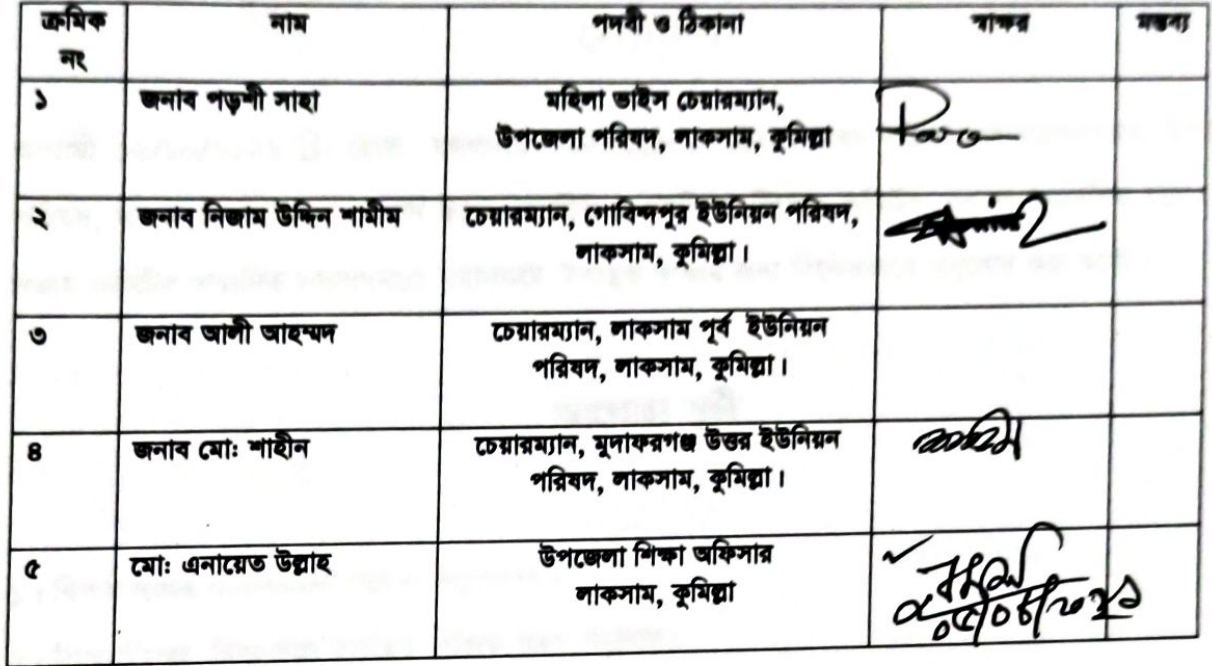 ক্রমিক নং নাম পদবী ও ঠিকানা স্বাক্ষর মন্তব্য
১ জনাব পড়শী সাহা মহিলা ভাইস চেয়ারম্যান,
উপজেলা পরিষদ, লাকসাম, কুমিল্লা
২ জনাব নিজাম উদ্দিন শামীম চেয়ারম্যান, গোবিন্দপুর ইউনিয়ন পরিষদ,
লাকসাম, কুমিল্লা।
৩ জনাব আলী আহম্মদ চেয়ারম্যান, লাকসাম পূর্ব ইউনিয়ন
পরিষদ, লাকসাম, কুমিল্লা।
৪ জনাব মো: শাহীন চেয়ারম্যান, মুদাফরগঞ্জ উত্তর ইউনিয়ন
পরিষদ, লাকসাম, কুমিল্লা।
৫ মো: এনায়েত উল্লাহ উপজেলা শিক্ষা অফিসার
লাকসাম, কুমিল্লা